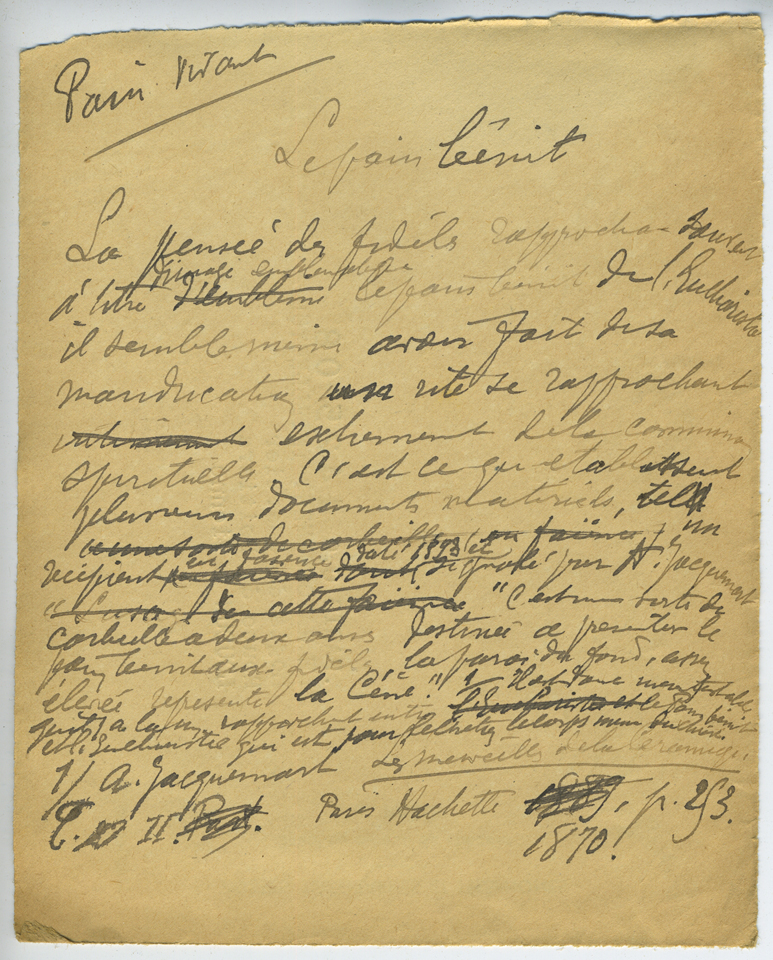 Pain vivant
Le pain bénit
La pensée des fidèles rapprocha souvent
d'image emblématique
à titre d'emblème le pain bénit de l'Eucharistie
il semble même avoir fait de sa
manducation un rite se rapprochant
extrêmement de la communion
spirituelle. C'est ce qu'établissent
plusieurs documents matériels, tel
une sorte de corbeille en faïence, un
en faïence daté 1893 et
récipient signalé par A. Jacquemart
"C'est une sorte de
corbeille à deux anses destinée à présenter le
pain bénit aux fidèles, la paroi du fond, assez
élevée représente la Cène." 1 Il est donc incontestable
qu'il y a là un rapprochement entre l'Eucharistie et le pain bénit
et l'Eucharistie qui est pour le chrétien le corps même du Christ.
1/ A. Jacquemart Les merveilles de la céramique,
T. II. Part. Paris Hachette 1889, p. 253.
1870.